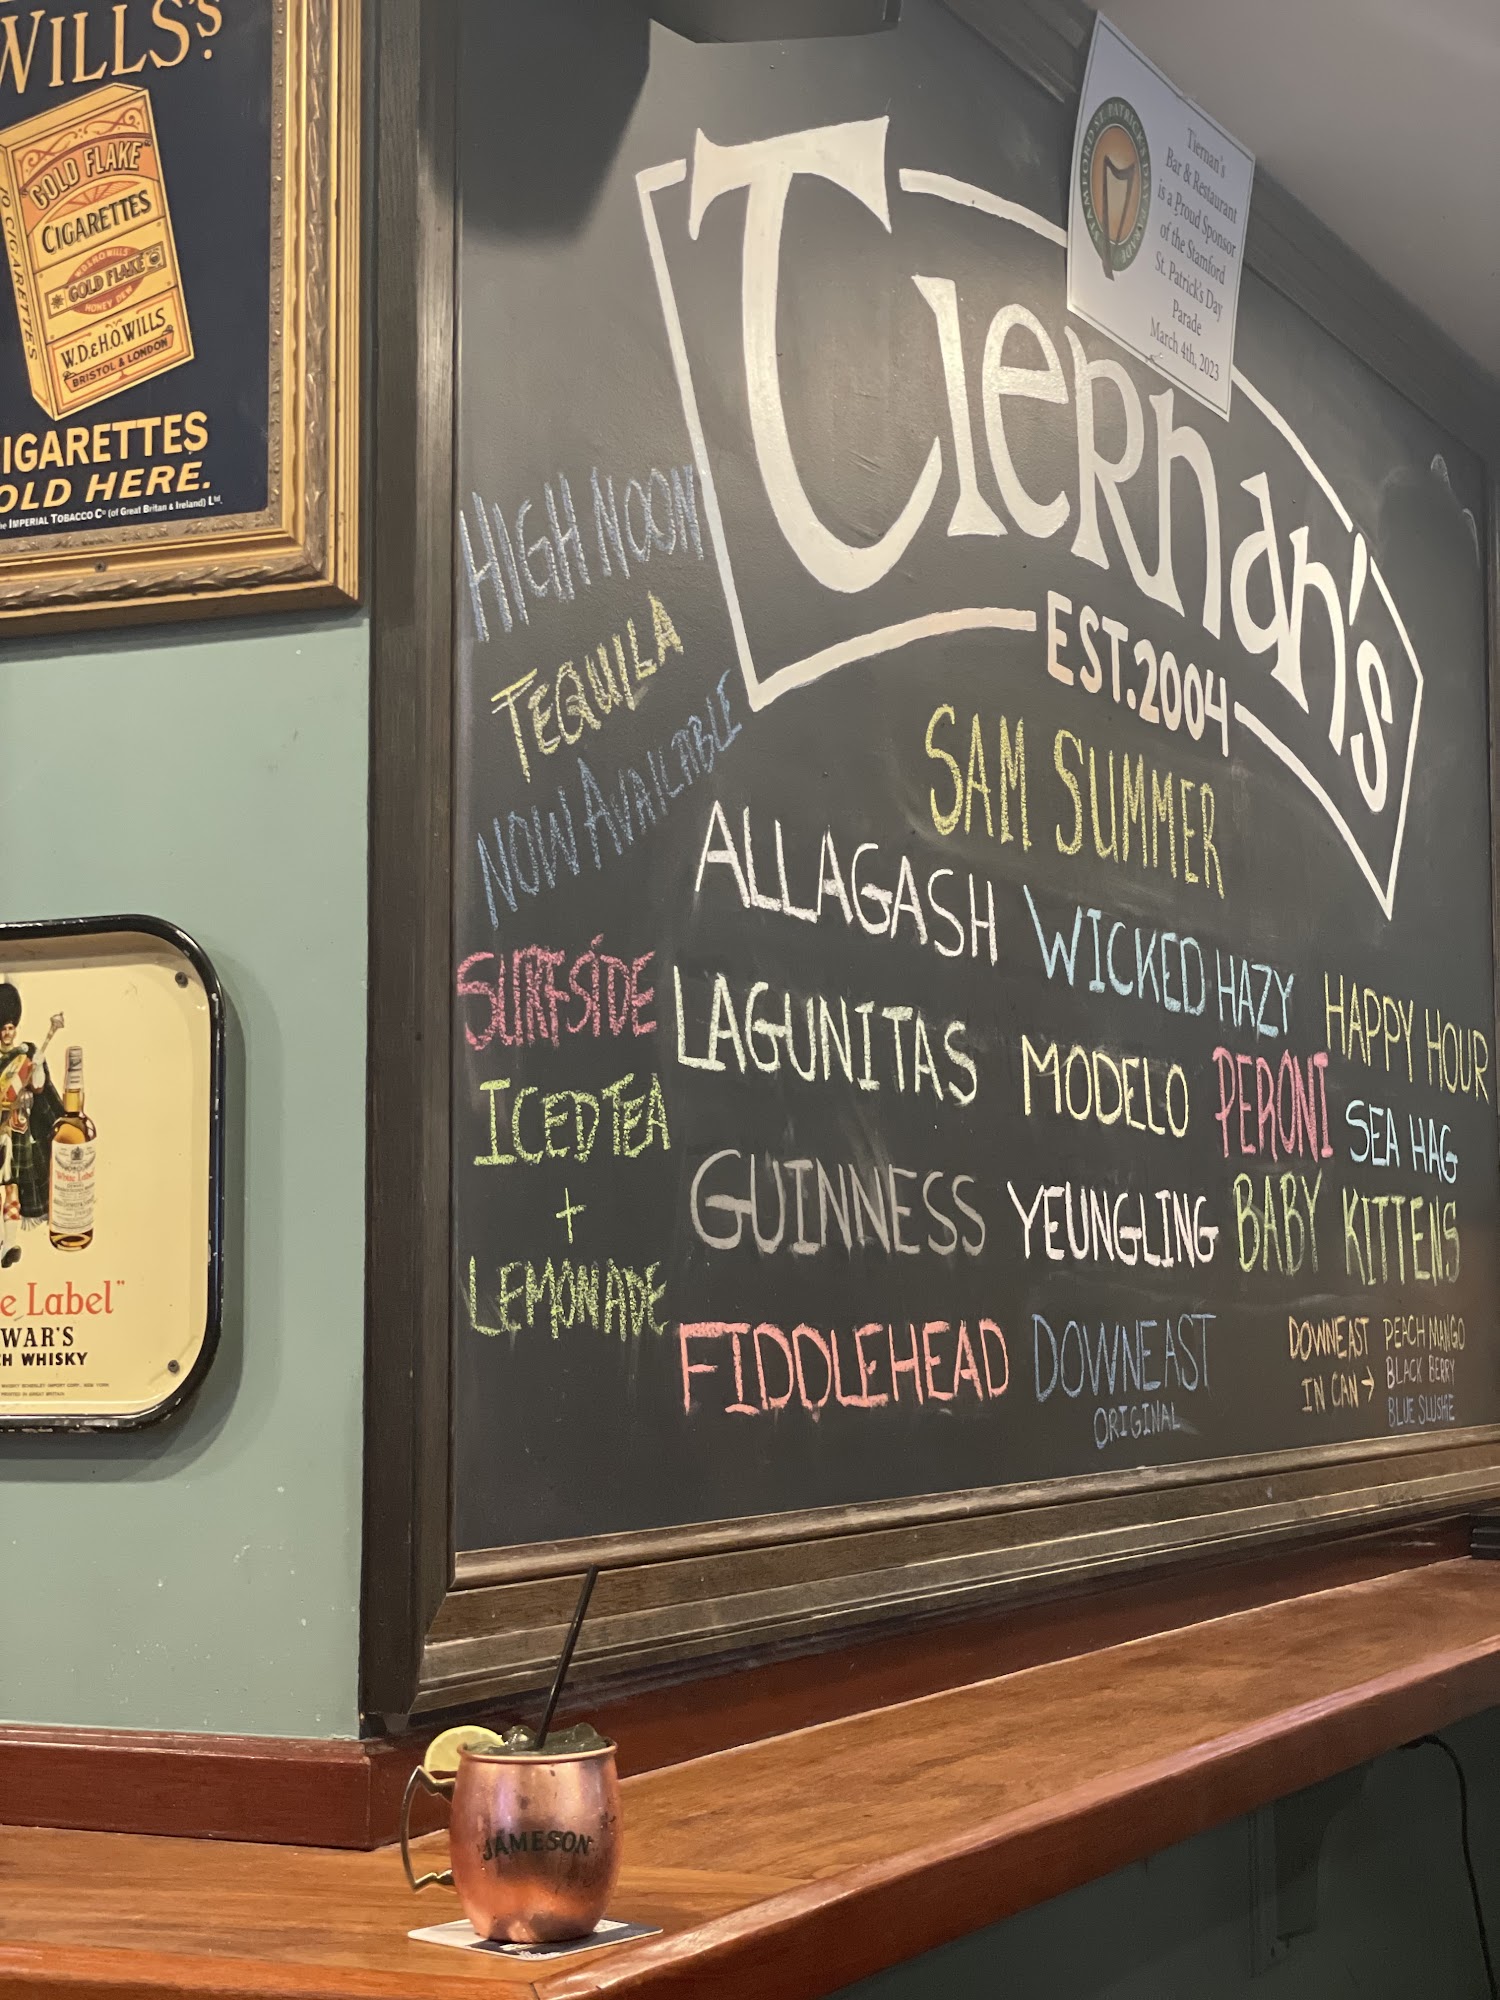 WILLS's
"GOLD FLAKE"
CIGARETTES
10 CIGARETTES
W.D.& H.O. WILLS
GOLD FLAKE
HONEY DEW
W.D.& H.O. WILLS
BRISTOL & LONDON
IGARETTES
OLD HERE.
he IMPERIAL TOBACCO Co (of Great Britan & Ireland) Ltd.
e Label"
WAR'S
CH WHISKY
White Label
STAMFORD ST. PATRICK'S DAY PARADE
Tiernan's
Bar & Restaurant
is a Proud Sponsor
of the Stamford
St. Patrick's Day
Parade
March 4th, 2023
Tiernan's
EST. 2004
HIGH NOON
TEQUILA
NOW AVAILABLE
SURFSIDE
ICED TEA
+
LEMONADE
SAM SUMMER
ALLAGASH WICKED HAZY
LAGUNITAS MODELO PERONI
GUINNESS YEUNGLING BABY KITTENS
FIDDLEHEAD DOWNEAST
ORIGINAL
HAPPY HOUR
SEA HAG
DOWNEAST
IN CAN →
PEACH MANGO
BLACK BERRY
BLUE SLUSHIE
JAMESON